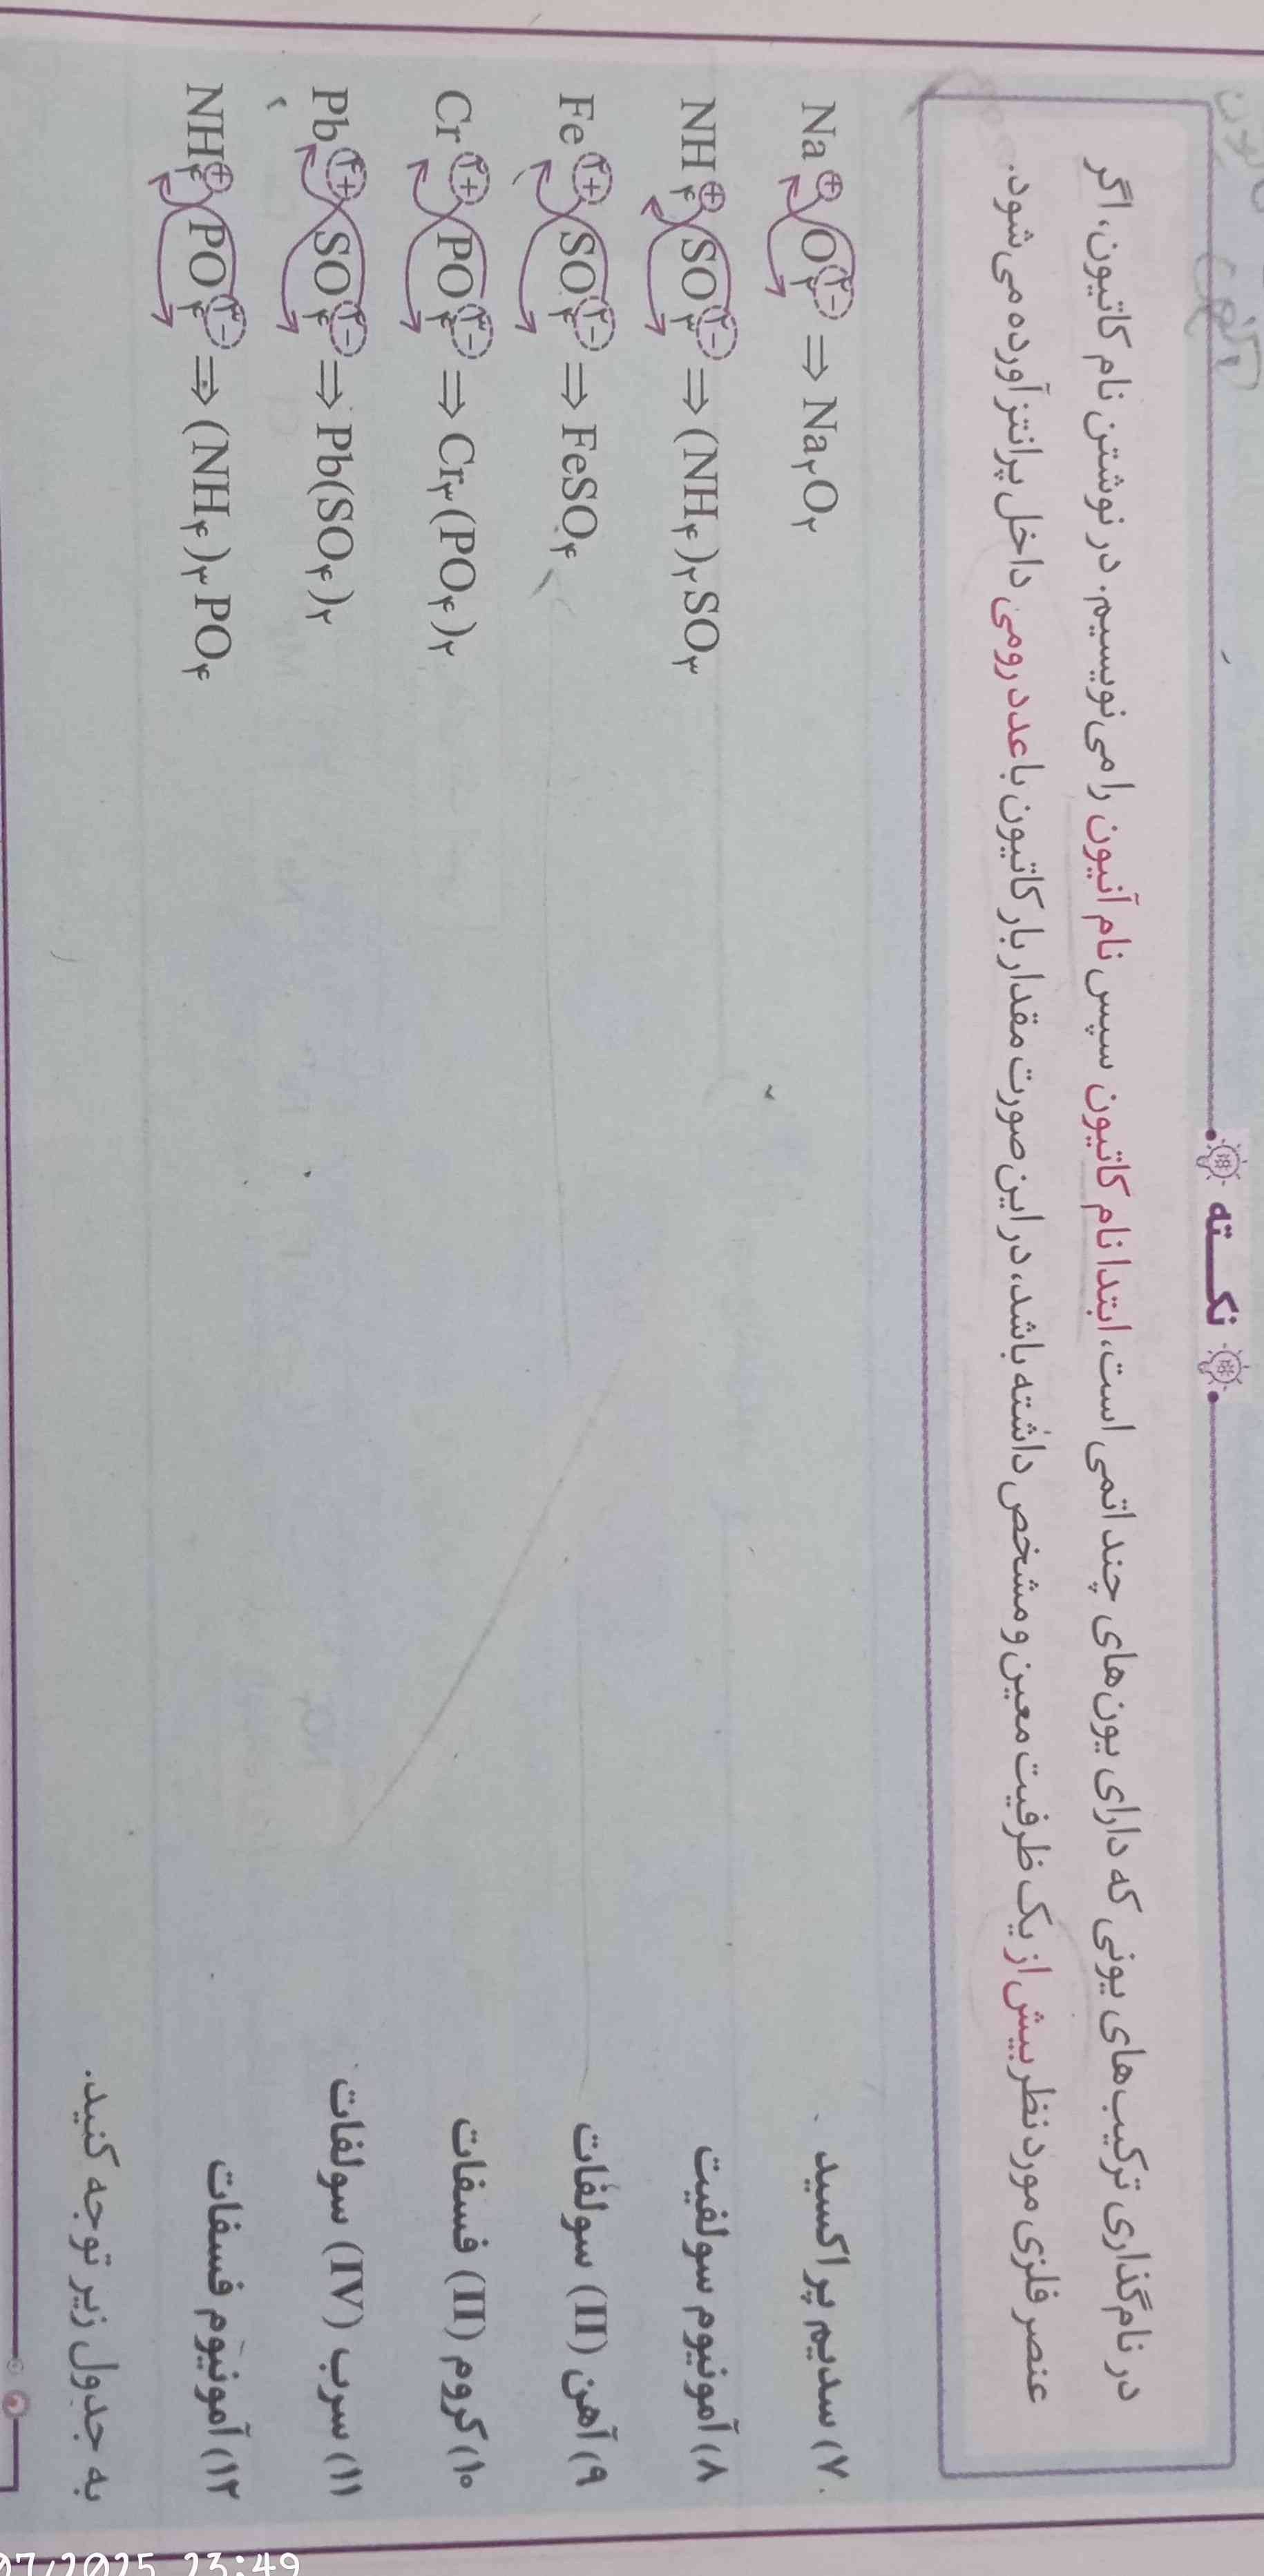 نکـــته
در نام‌گذاری ترکیب‌های یونی که دارای یون‌های چند اتمی است، ابتدا نام کاتیون سپس نام آنیون را می‌نویسیم. در نوشتن نام کاتیون، اگر
عنصر فلزی مورد نظر بیش از یک ظرفیت معین و مشخص داشته باشد، در این صورت مقدار بار کاتیون با عدد رومی داخل پرانتز آورده می‌شود.
۷) سدیم پراکسید Na⁺ O₂²⁻ ⇒ Na₂O₂
۸) آمونیوم سولفیت NH₄⁺ SO₃²⁻ ⇒ (NH₄)₂SO₃
۹) آهن (II) سولفات Fe²⁺ SO₄²⁻ ⇒ FeSO₄
۱۰) کروم (II) فسفات Cr²⁺ PO₄³⁻ ⇒ Cr₃(PO₄)₂
۱۱) سرب (IV) سولفات Pb⁴⁺ SO₄²⁻ ⇒ Pb(SO₄)₂
۱۲) آمونیوم فسفات NH₄⁺ PO₄³⁻ ⇒ (NH₄)₃PO₄
به جدول زیر توجه کنید.
07/2025 23:49